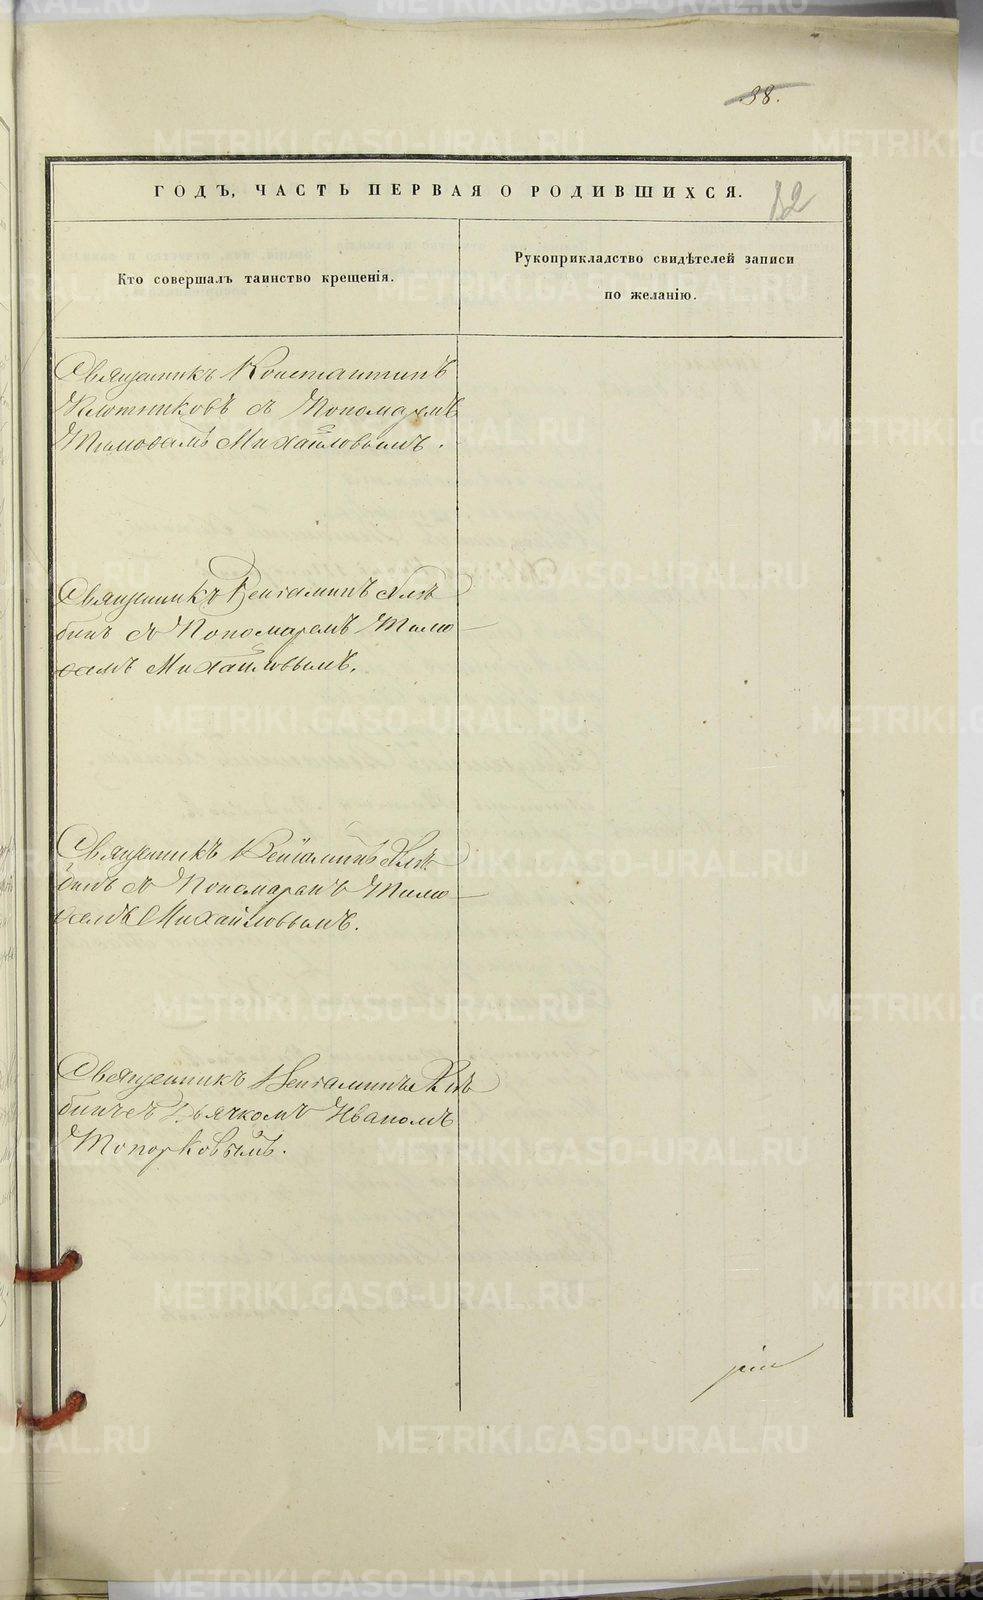 38.
ГОДЪ, ЧАСТЬ ПЕРВАЯ О РОДИВШИХСЯ.
12
Кто совершалъ таинство крещенія.
Рукоприкладство свидѣтелей записи
по желанію.
Священникъ Константинъ
Плотниковъ съ Пономаремъ
Михайловымъ.
Священникъ Веніаминъ Хлѣ
бинъ съ Пономаремъ
Михайловымъ.
Священникъ Веніаминъ Хлѣ
бинъ съ Пономаремъ
Михайловымъ.
Священникъ Веніаминъ Хлѣ
бинъ съ Дьячкомъ Иваномъ
Топорковымъ.
METRIKI.GASO-URAL.RU